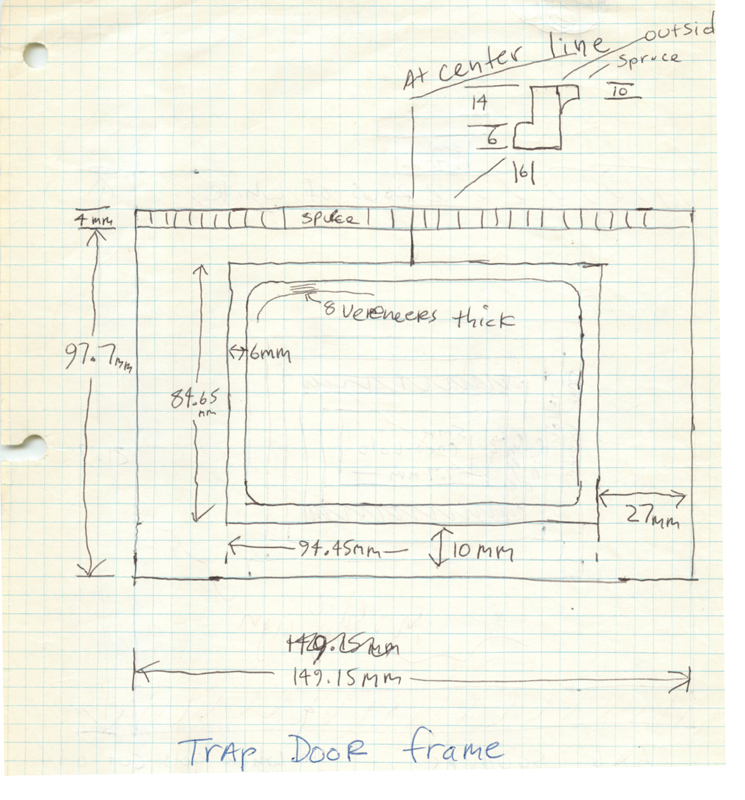 outsid
At center line
spruce
14
10
6
161
4 mm
spruce
8 vereneers thick
97.7mm
6mm
84.65
mm
27mm
94.45mm
10 mm
149.15mm
149.15mm
TRAP DOOR frame